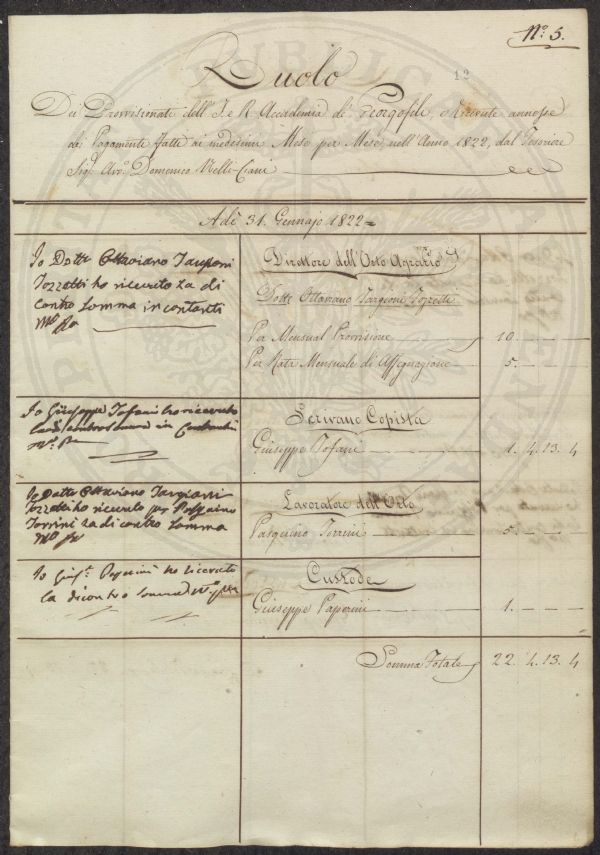 N.° 5.
12
Ruolo
Dei Provvisionati dell' I. e R. Accademia de' Georgofili, e Ricevute annesse
dei Pagamenti fatti ai medesimi Mese per Mese, nell' Anno 1822, dal Tesoriere
Sig. Avv. Domenico Nelli-Ciani
Adì 31. Gennajo 1822=
Io Dott Ottaviano Targioni
Tozzetti ho ricevuto la di
contro Somma in contanti
M° Pa
Direttore dell' Orto Agrario
Dotte Ottaviano Targioni Tozzetti
Per Mensual Provvisione 10. — — —
Per Rata Mensuale di Assegnazione 5. — — —
Io Giuseppe Tofani ho ricevuto
la di contro Somma in Contanti
M° P
Scrivano Copista
Giuseppe Tofani 1. 4. 13. 4
Io Dotte Ottaviano Targioni
Tozzetti ho ricevuto per Pasquino
Torrini la di contro Somma
M° P
Lavoratore dell' Orto
Pasquino Torrini 5. — — —
Io Gius. Paperini ho ricevuto
la dicontro somma M°
Custode
Giuseppe Paperini 1. — — —
Somma Totale 22. 4. 13. 4